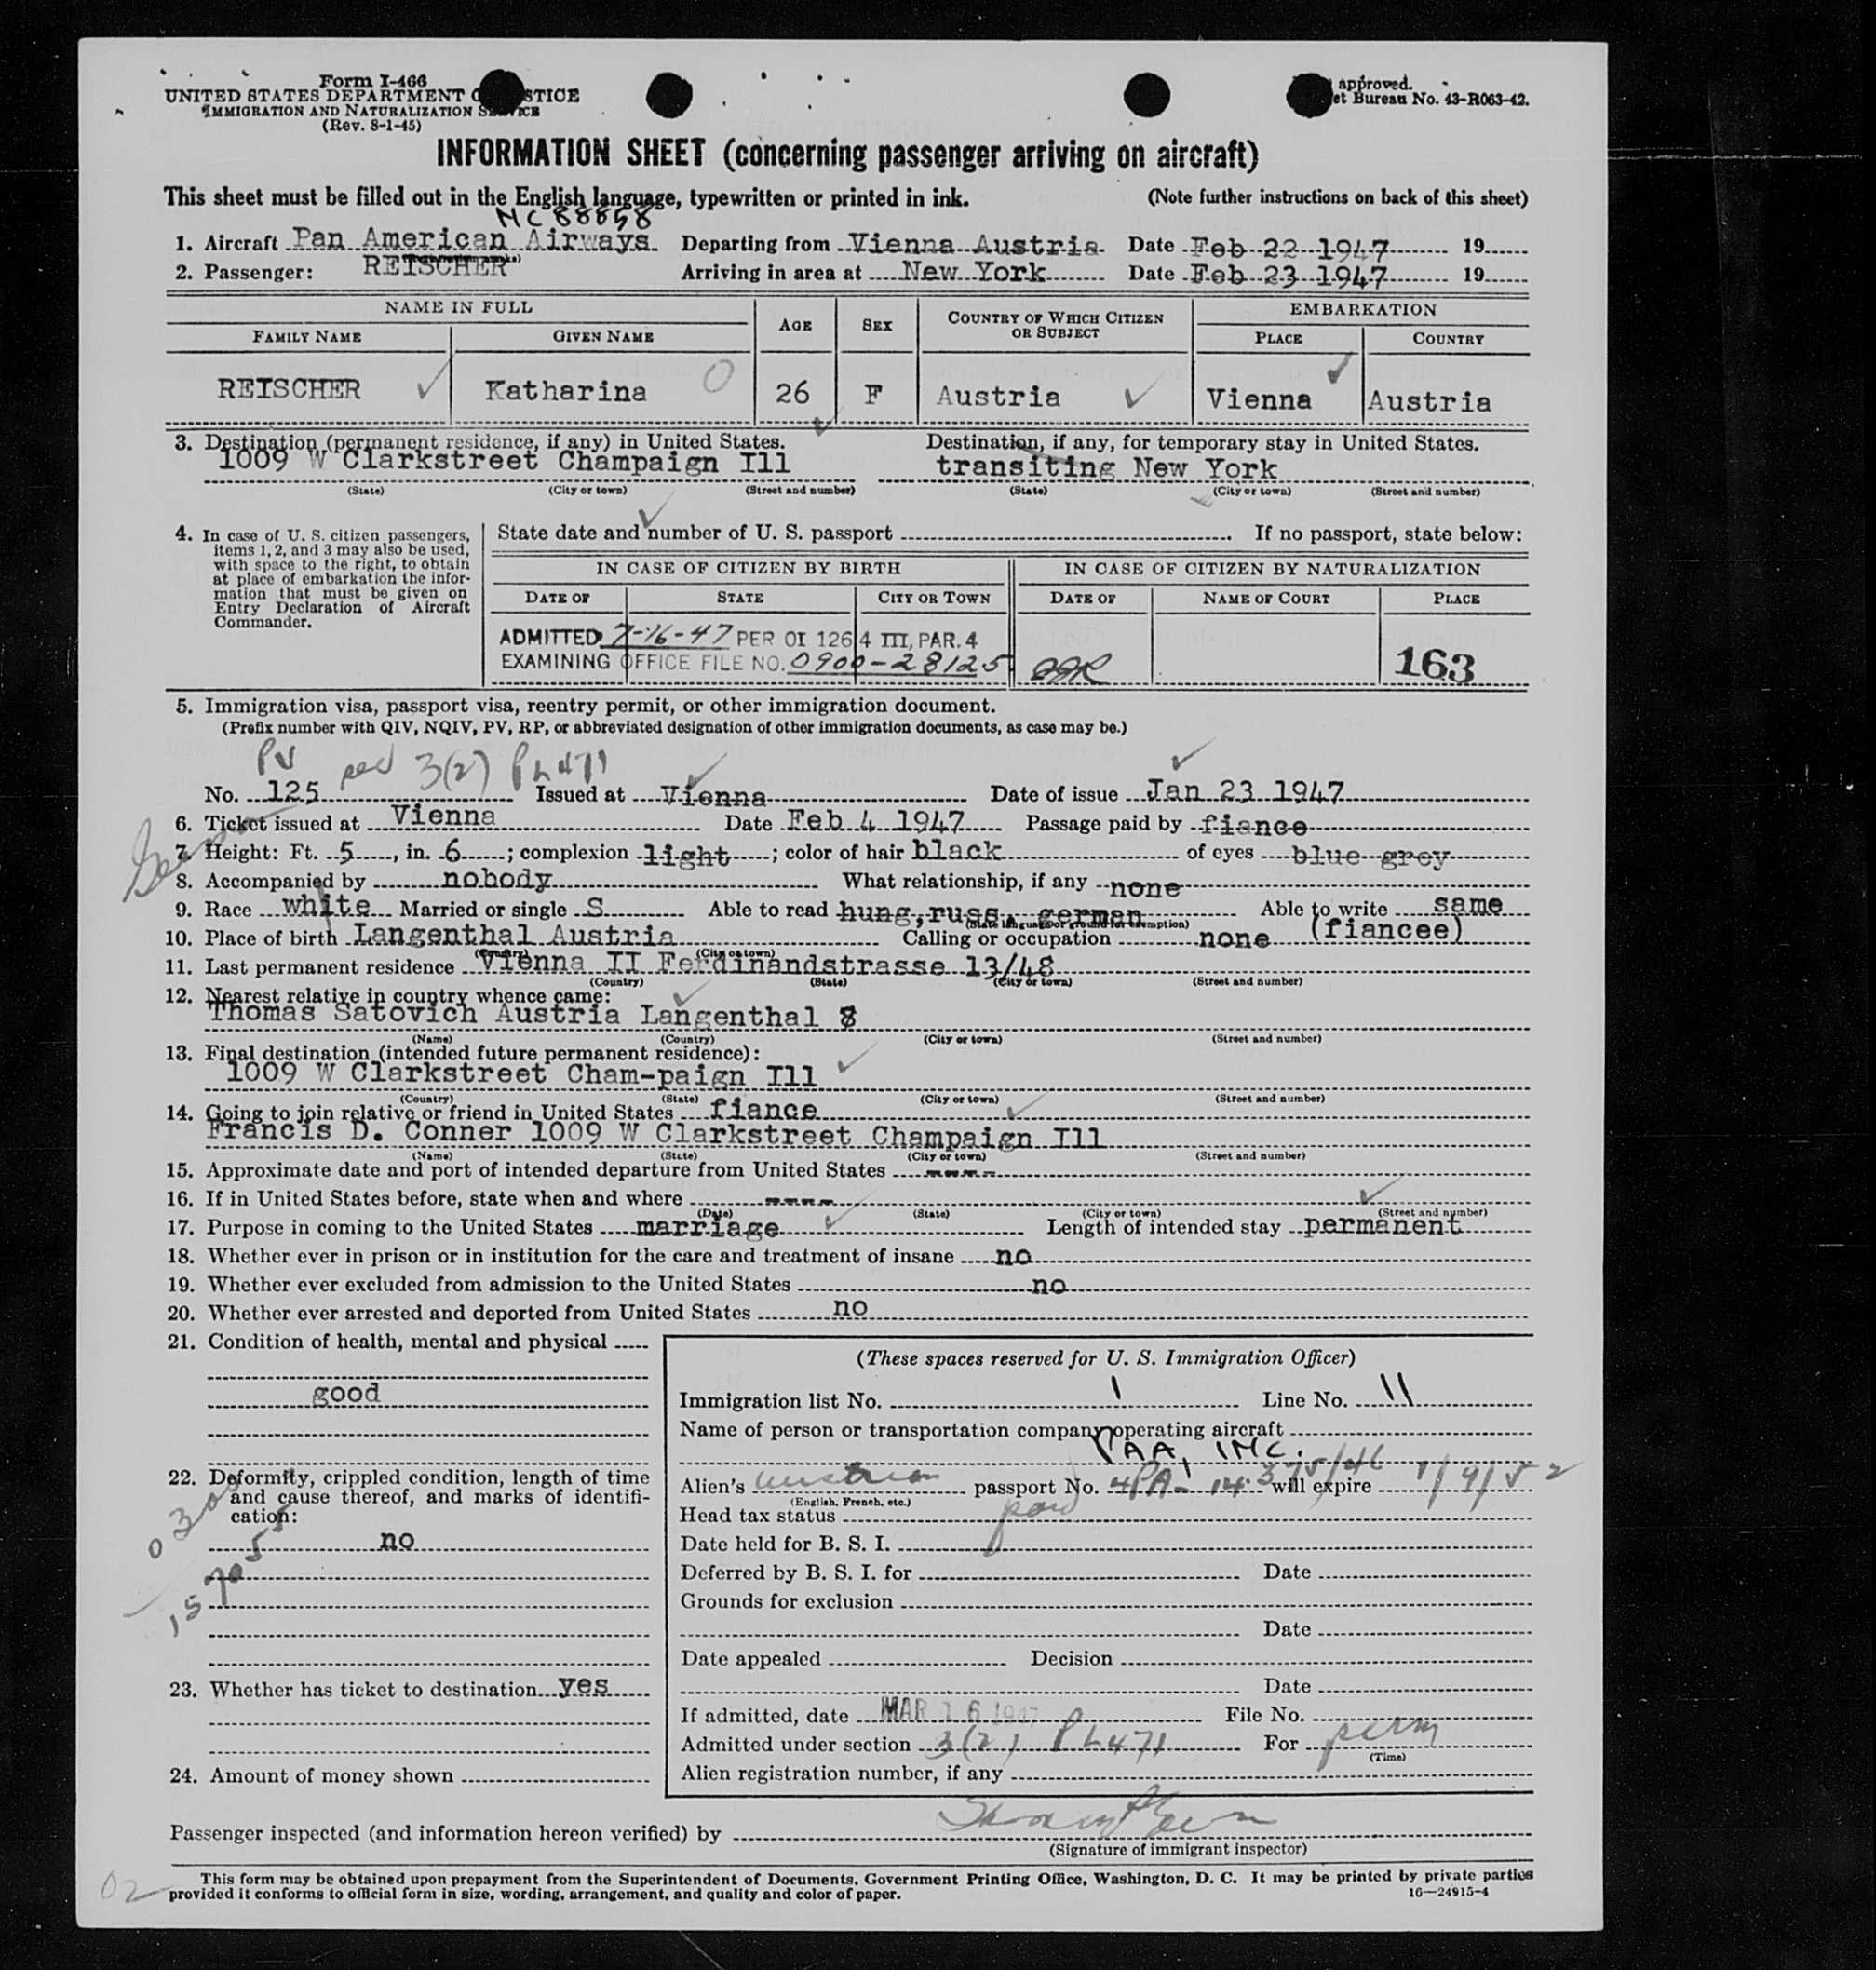 Form I-466
UNITED STATES DEPARTMENT O STICE
IMMIGRATION AND NATURALIZATION SERVICE
(Rev. 8-1-45)
approved.
et Bureau No. 43-R063-42.
INFORMATION SHEET (concerning passenger arriving on aircraft)
This sheet must be filled out in the English language, typewritten or printed in ink. (Note further instructions on back of this sheet)
NC 88858
1. Aircraft Pan American Airways Departing from Vienna Austria Date Feb 22 1947 19
2. Passenger: REISCHER Arriving in area at New York Date Feb 23 1947 19
NAME IN FULL
FAMILY NAME GIVEN NAME AGE SEX COUNTRY OF WHICH CITIZEN OR SUBJECT EMBARKATION
PLACE COUNTRY
REISCHER Katharina 0 26 F Austria Vienna Austria
3. Destination (permanent residence, if any) in United States. Destination, if any, for temporary stay in United States.
1009 W Clarkstreet Champaign Ill transiting New York
(State) (City or town) (Street and number) (State) (City or town) (Street and number)
4. In case of U. S. citizen passengers, items 1, 2, and 3 may also be used, with space to the right, to obtain at place of embarkation the information that must be given on Entry Declaration of Aircraft Commander.
State date and number of U. S. passport . If no passport, state below:
IN CASE OF CITIZEN BY BIRTH IN CASE OF CITIZEN BY NATURALIZATION
DATE OF STATE CITY OR TOWN DATE OF NAME OF COURT PLACE
ADMITTED 7-16-47 PER OI 126.4 III, PAR. 4
EXAMINING OFFICE FILE NO. 0900-28125 163
5. Immigration visa, passport visa, reentry permit, or other immigration document.
(Prefix number with QIV, NQIV, PV, RP, or abbreviated designation of other immigration documents, as case may be.)
PV 3(2) PL471
No. 125 Issued at Vienna Date of issue Jan 23 1947
6. Ticket issued at Vienna Date Feb 4 1947 Passage paid by fiance
7. Height: Ft. 5, in. 6; complexion light; color of hair black of eyes blue grey
8. Accompanied by nobody What relationship, if any none
9. Race white Married or single S Able to read hung, russ, german Able to write same
(State language or ground for exemption)
10. Place of birth Langenthal Austria Calling or occupation none (fiancee)
(Country) (City or town)
11. Last permanent residence Vienna II Ferdinandstrasse 13/48
(Country) (State) (City or town) (Street and number)
12. Nearest relative in country whence came:
Thomas Satovich Austria Langenthal 8
(Name) (Country) (City or town) (Street and number)
13. Final destination (intended future permanent residence):
1009 W Clarkstreet Cham-paign Ill
(Country) (State) (City or town) (Street and number)
14. Going to join relative or friend in United States fiance
Francis D. Conner 1009 W Clarkstreet Champaign Ill
(Name) (State) (City or town) (Street and number)
15. Approximate date and port of intended departure from United States ----
16. If in United States before, state when and where ----
(Date) (State) (City or town) (Street and number)
17. Purpose in coming to the United States marriage Length of intended stay permanent
18. Whether ever in prison or in institution for the care and treatment of insane no
19. Whether ever excluded from admission to the United States no
20. Whether ever arrested and deported from United States no
21. Condition of health, mental and physical
good
22. Deformity, crippled condition, length of time and cause thereof, and marks of identification:
no
23. Whether has ticket to destination yes
24. Amount of money shown
(These spaces reserved for U. S. Immigration Officer)
Immigration list No. 1 Line No. 11
Name of person or transportation company operating aircraft
PAA, INC.
Alien's Austrian passport No. will expire 1/9/52
(English, French, etc.)
Head tax status paid
Date held for B. S. I.
Deferred by B. S. I. for Date
Grounds for exclusion
Date
Date appealed Decision
Date
If admitted, date MAR 16 1947 File No.
Admitted under section 3(2) PL471 For perm
(Time)
Alien registration number, if any
Passenger inspected (and information hereon verified) by
(Signature of immigrant inspector)
02
This form may be obtained upon prepayment from the Superintendent of Documents, Government Printing Office, Washington, D. C. It may be printed by private parties
provided it conforms to official form in size, wording, arrangement, and quality and color of paper.
16—24915-4